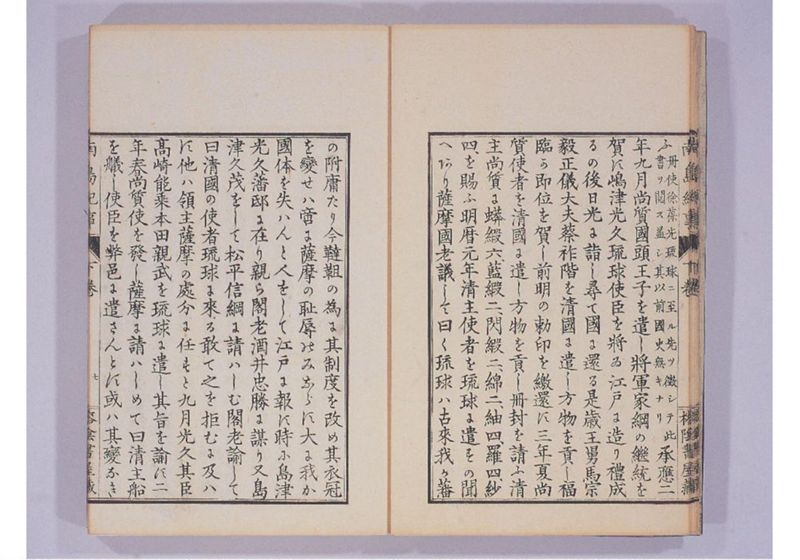 ふ冊使徐葆光琉球ニ至ル先ツ徵シテ此
書ヲ閲ス蓋シ其以前國史無キナリ
承應二
年九月尚質國頭王子を遣し將軍家綱の繼統を
賀に嶋津光久琉球使臣を將ゐ江戸に造り禮成
るの後日光に詣し尋て國に還る是歳王舅馬宗
毅正儀大夫蔡祚階を清國に遣し方物を貢し福
臨の即位を賀し前明の勅印を繳還に三年夏尚
質使者を清國に遣し方物を貢し冊封を請ふ清
主尚質に蟒緞六藍緞二閃緞二綿二紬四羅四紗
四を賜ふ明暦元年清主使者を琉球に遣をの聞
へあり薩摩國老議して曰く琉球ハ古來我か藩
南島紀事
下巻
の附庸たり今韃靼の為に其制度を改め其衣冠
を變せハ啻に薩摩の恥辱のみあらに大に我か
國体を失ハんと人をして江戸に報に時に島津
光久藩邸に在り親ら閣老酒井忠勝に謀り又島
津久茂をして松平信綱に請ハしむ閣老諭して
曰清國の使者琉球に來る敢て之を拒むに及ハ
に他ハ領主薩摩の處分に任もと九月光久其臣
髙崎能乘本田親武を琉球に遣し其旨を諭に二
年春尚質使を發し薩摩に請ハしめて曰清主船
を艤し使臣を弊邑に遣さんとに或ハ其變あき
南島紀事
下巻
七